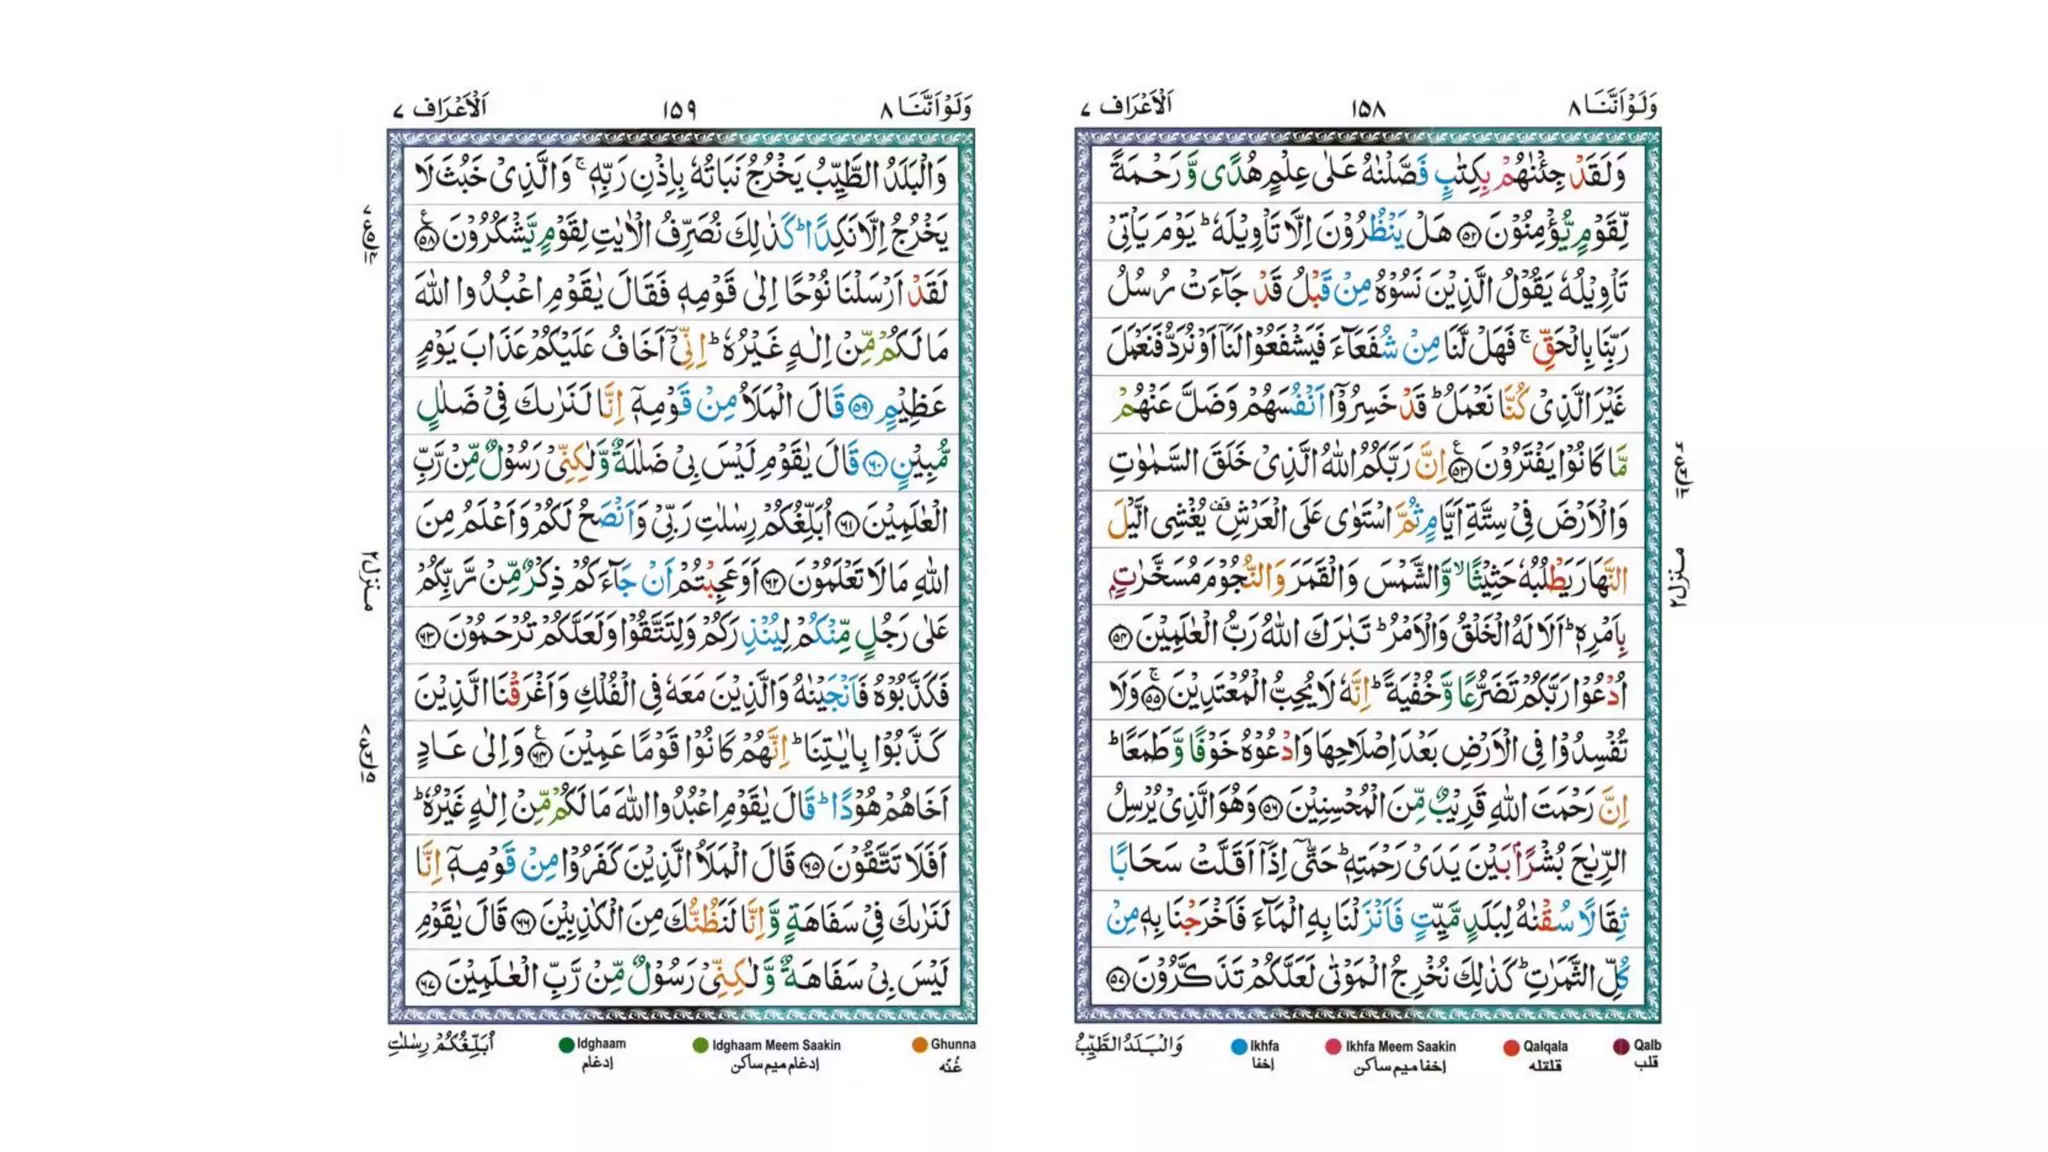 وَلَوْ اَنَّنَا ٨
١٥٨
اَلْاَعْرَاف ٧
وَلَقَدْ جِئْنٰهُمْ بِكِتٰبٍ فَصَّلْنٰهُ عَلٰى عِلْمٍ هُدًى وَّ رَحْمَةً
لِّقَوْمٍ يُّؤْمِنُوْنَ ﴿٥٢﴾ هَلْ يَنْظُرُوْنَ اِلَّا تَاْوِيْلَهٗ ؕ يَوْمَ يَاْتِيْ
تَاْوِيْلُهٗ يَقُوْلُ الَّذِيْنَ نَسُوْهُ مِنْ قَبْلُ قَدْ جَآءَتْ رُسُلُ
رَبِّنَا بِالْحَقِّ ۚ فَهَلْ لَّنَا مِنْ شُفَعَآءَ فَيَشْفَعُوْا لَنَاۤ اَوْ نُرَدُّ فَنَعْمَلَ
غَيْرَ الَّذِيْ كُنَّا نَعْمَلُ ؕ قَدْ خَسِرُوْۤا اَنْفُسَهُمْ وَضَلَّ عَنْهُمْ
مَّا كَانُوْا يَفْتَرُوْنَ ﴿٥٣﴾ اِنَّ رَبَّكُمُ اللّٰهُ الَّذِيْ خَلَقَ السَّمٰوٰتِ
وَالْاَرْضَ فِيْ سِتَّةِ اَيَّامٍ ثُمَّ اسْتَوٰى عَلَى الْعَرْشِ ۟ يُغْشِى الَّيْلَ
النَّهَارَ يَطْلُبُهٗ حَثِيْثًا ۙ وَّالشَّمْسَ وَالْقَمَرَ وَالنُّجُوْمَ مُسَخَّرٰتٍۭ
بِاَمْرِهٖ ؕ اَلَا لَهُ الْخَلْقُ وَالْاَمْرُ ؕ تَبٰرَكَ اللّٰهُ رَبُّ الْعٰلَمِيْنَ ﴿٥٤﴾
اُدْعُوْا رَبَّكُمْ تَضَرُّعًا وَّ خُفْيَةً ؕ اِنَّهٗ لَا يُحِبُّ الْمُعْتَدِيْنَ ﴿٥٥﴾ وَلَا
تُفْسِدُوْا فِى الْاَرْضِ بَعْدَ اِصْلَاحِهَا وَادْعُوْهُ خَوْفًا وَّ طَمَعًا ؕ
اِنَّ رَحْمَتَ اللّٰهِ قَرِيْبٌ مِّنَ الْمُحْسِنِيْنَ ﴿٥٦﴾ وَهُوَ الَّذِيْ يُرْسِلُ
الرِّيٰحَ بُشْرًاۢ بَيْنَ يَدَيْ رَحْمَتِهٖ ؕ حَتّٰىۤ اِذَاۤ اَقَلَّتْ سَحَابًا
ثِقَالًا سُقْنٰهُ لِبَلَدٍ مَّيِّتٍ فَاَنْزَلْنَا بِهِ الْمَآءَ فَاَخْرَجْنَا بِهٖ مِنْ
كُلِّ الثَّمَرٰتِ ؕ كَذٰلِكَ نُخْرِجُ الْمَوْتٰى لَعَلَّكُمْ تَذَكَّرُوْنَ ﴿٥٧﴾
منزل ٢
Qalb
قلب
Qalqala
قلقله
Ikhfa Meem Saakin
إخفا ميم ساكن
Ikhfa
إخفا
وَالْبَلَدُ الطَّيِّبُ
وَلَوْ اَنَّنَا ٨
١٥٩
اَلْاَعْرَاف ٧
وَالْبَلَدُ الطَّيِّبُ يَخْرُجُ نَبَاتُهٗ بِاِذْنِ رَبِّهٖ ۚ وَالَّذِيْ خَبُثَ لَا
يَخْرُجُ اِلَّا نَكِدًا ؕ كَذٰلِكَ نُصَرِّفُ الْاٰيٰتِ لِقَوْمٍ يَّشْكُرُوْنَ ﴿٥٨﴾
لَقَدْ اَرْسَلْنَا نُوْحًا اِلٰى قَوْمِهٖ فَقَالَ يٰقَوْمِ اعْبُدُوا اللّٰهَ
مَا لَكُمْ مِّنْ اِلٰهٍ غَيْرُهٗ ؕ اِنِّيْۤ اَخَافُ عَلَيْكُمْ عَذَابَ يَوْمٍ
عَظِيْمٍ ﴿٥٩﴾ قَالَ الْمَلَاُ مِنْ قَوْمِهٖۤ اِنَّا لَنَرٰىكَ فِيْ ضَلٰلٍ
مُّبِيْنٍ ﴿٦٠﴾ قَالَ يٰقَوْمِ لَيْسَ بِيْ ضَلٰلَةٌ وَّلٰكِنِّيْ رَسُوْلٌ مِّنْ رَّبِّ
الْعٰلَمِيْنَ ﴿٦١﴾ اُبَلِّغُكُمْ رِسٰلٰتِ رَبِّيْ وَاَنْصَحُ لَكُمْ وَاَعْلَمُ مِنَ
اللّٰهِ مَا لَا تَعْلَمُوْنَ ﴿٦٢﴾ اَوَعَجِبْتُمْ اَنْ جَآءَكُمْ ذِكْرٌ مِّنْ رَّبِّكُمْ
عَلٰى رَجُلٍ مِّنْكُمْ لِيُنْذِرَكُمْ وَلِتَتَّقُوْا وَلَعَلَّكُمْ تُرْحَمُوْنَ ﴿٦٣﴾
فَكَذَّبُوْهُ فَاَنْجَيْنٰهُ وَالَّذِيْنَ مَعَهٗ فِى الْفُلْكِ وَاَغْرَقْنَا الَّذِيْنَ
كَذَّبُوْا بِاٰيٰتِنَا ؕ اِنَّهُمْ كَانُوْا قَوْمًا عَمِيْنَ ﴿٦٤﴾ وَاِلٰى عَادٍ
اَخَاهُمْ هُوْدًا ؕ قَالَ يٰقَوْمِ اعْبُدُوا اللّٰهَ مَا لَكُمْ مِّنْ اِلٰهٍ غَيْرُهٗ ؕ
اَفَلَا تَتَّقُوْنَ ﴿٦٥﴾ قَالَ الْمَلَاُ الَّذِيْنَ كَفَرُوْا مِنْ قَوْمِهٖۤ اِنَّا
لَنَرٰىكَ فِيْ سَفَاهَةٍ وَّ اِنَّا لَنَظُنُّكَ مِنَ الْكٰذِبِيْنَ ﴿٦٦﴾ قَالَ يٰقَوْمِ
لَيْسَ بِيْ سَفَاهَةٌ وَّ لٰكِنِّيْ رَسُوْلٌ مِّنْ رَّبِّ الْعٰلَمِيْنَ ﴿٦٧﴾
منزل ٢
Ghunna
غُنّه
Idghaam Meem Saakin
إدغام ميم ساكن
Idghaam
إدغام
اُبَلِّغُكُمْ رِسٰلٰتِ